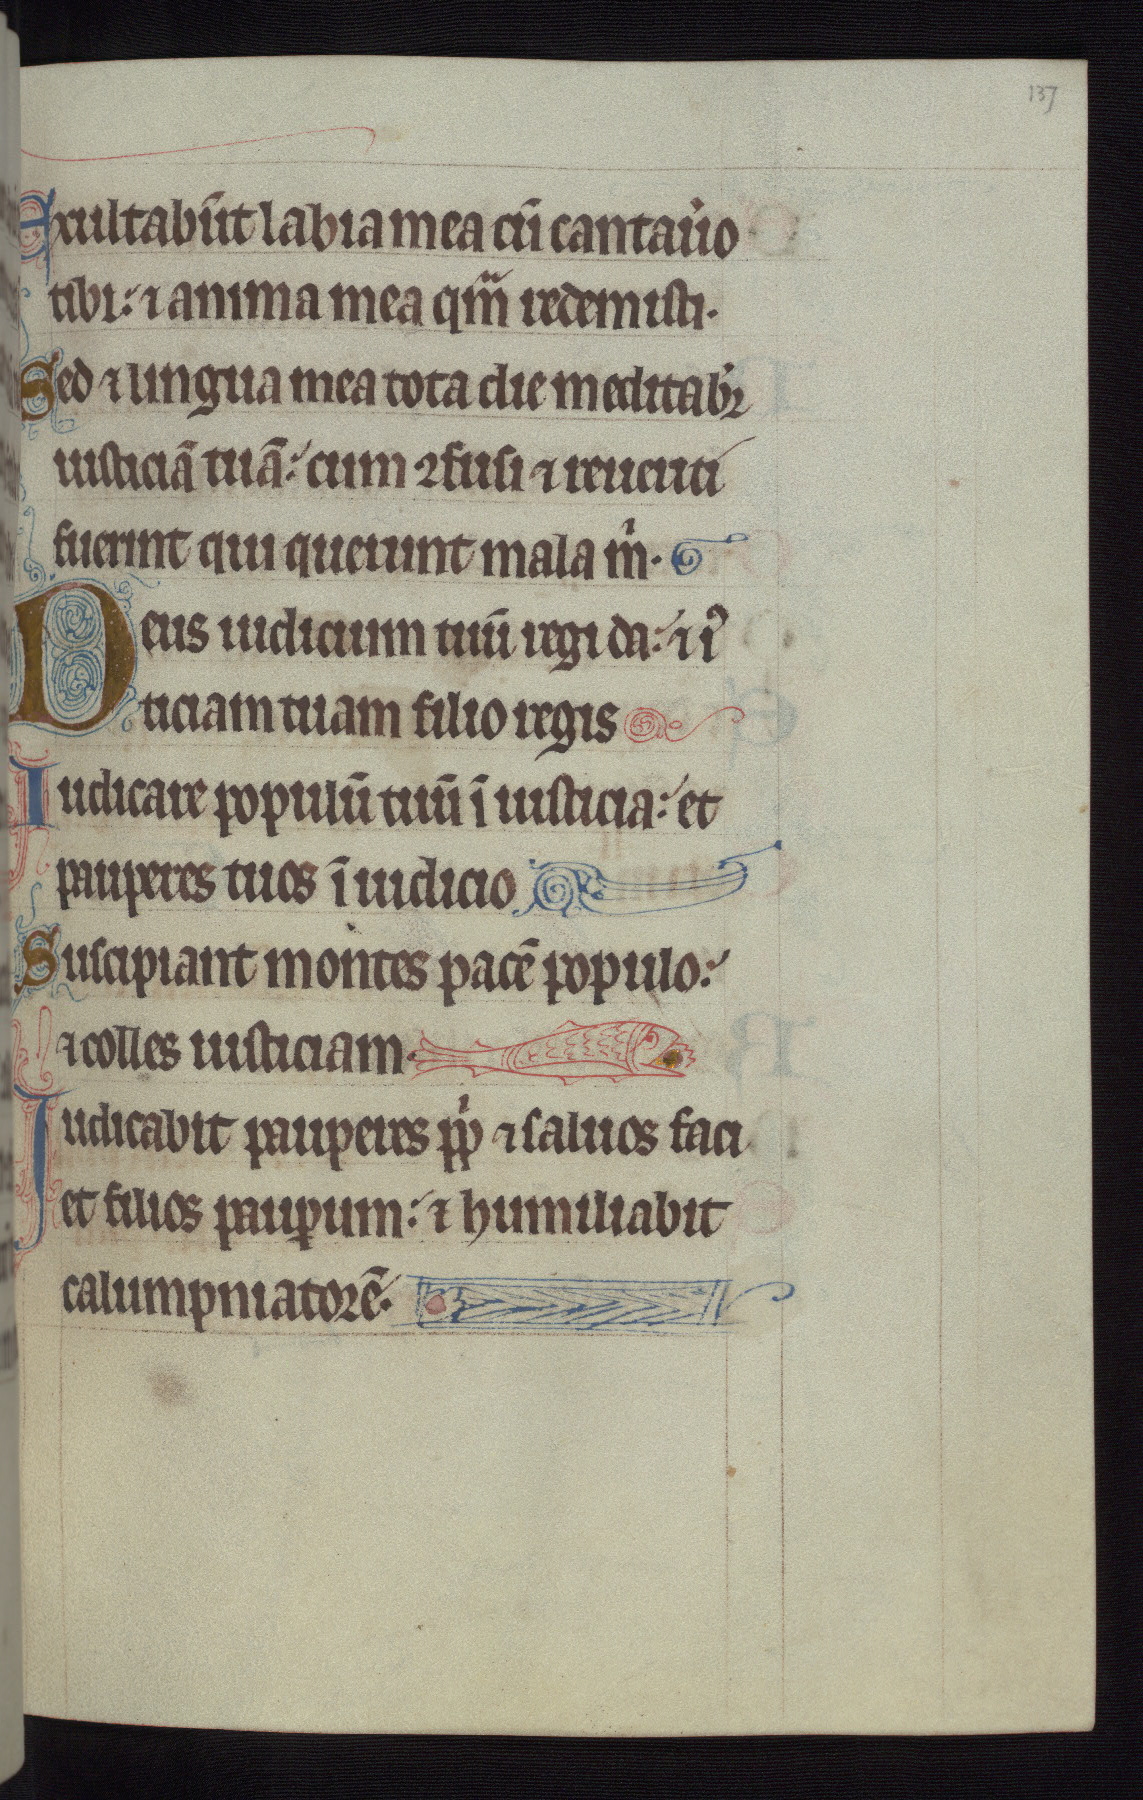 137
Exultabūt labia mea cū cantaũo
tibi: ⁊ anima mea qm̄ redemisti.
Sed ⁊ lingua mea tota die meditabr̃
iusticiā tuā: cum ꝯfusi ⁊ reueriti
fuerint qui querunt mala m̍.
Deus iudicium tuū regi da: ⁊ iꝰ
ticiam tuam filio regis
Iudicare populū tuū ī iusticia: et
pauperes tuos ī iudicio
Suscipiant montes pacē populo:
⁊ colles iusticiam.
Iudicabit pauperes pp̍ ⁊ saluos faci
et filios paupum: ⁊ humiliabit
calumpniatorē.